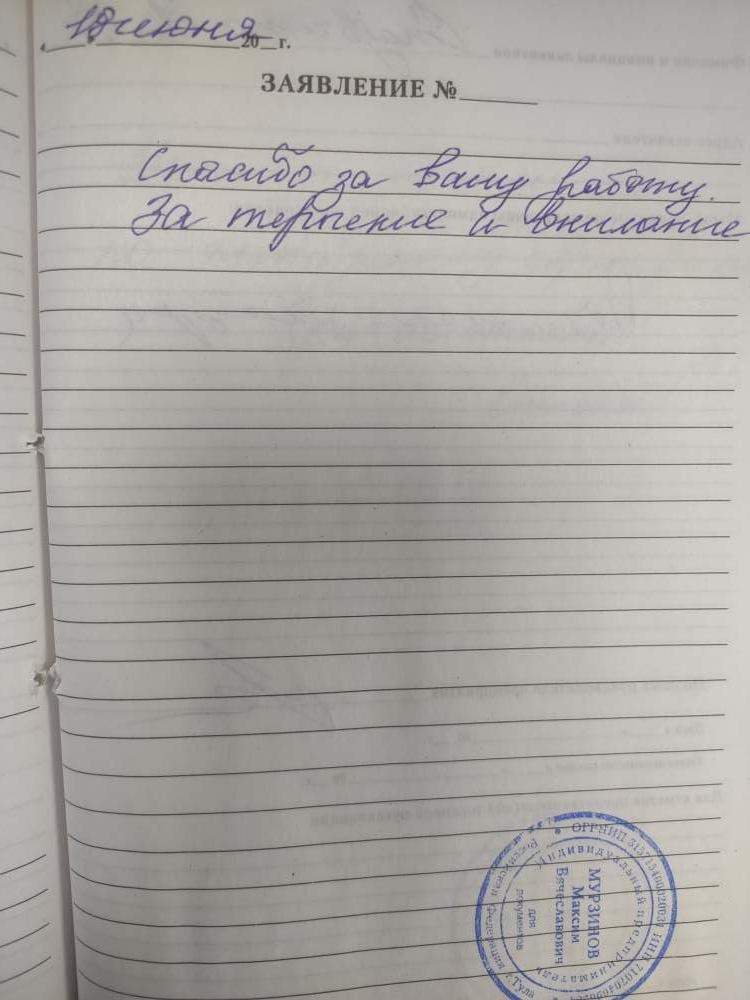 10 июня 20 г.
ЗАЯВЛЕНИЕ №
Спасибо за вашу работу.
За терпение и внимание
Российская Федерация г.Тула
ОГРНИП ИНН
Индивидуальный предприниматель
МУРЗИНОВ
Максим
Вячеславович
для
документов